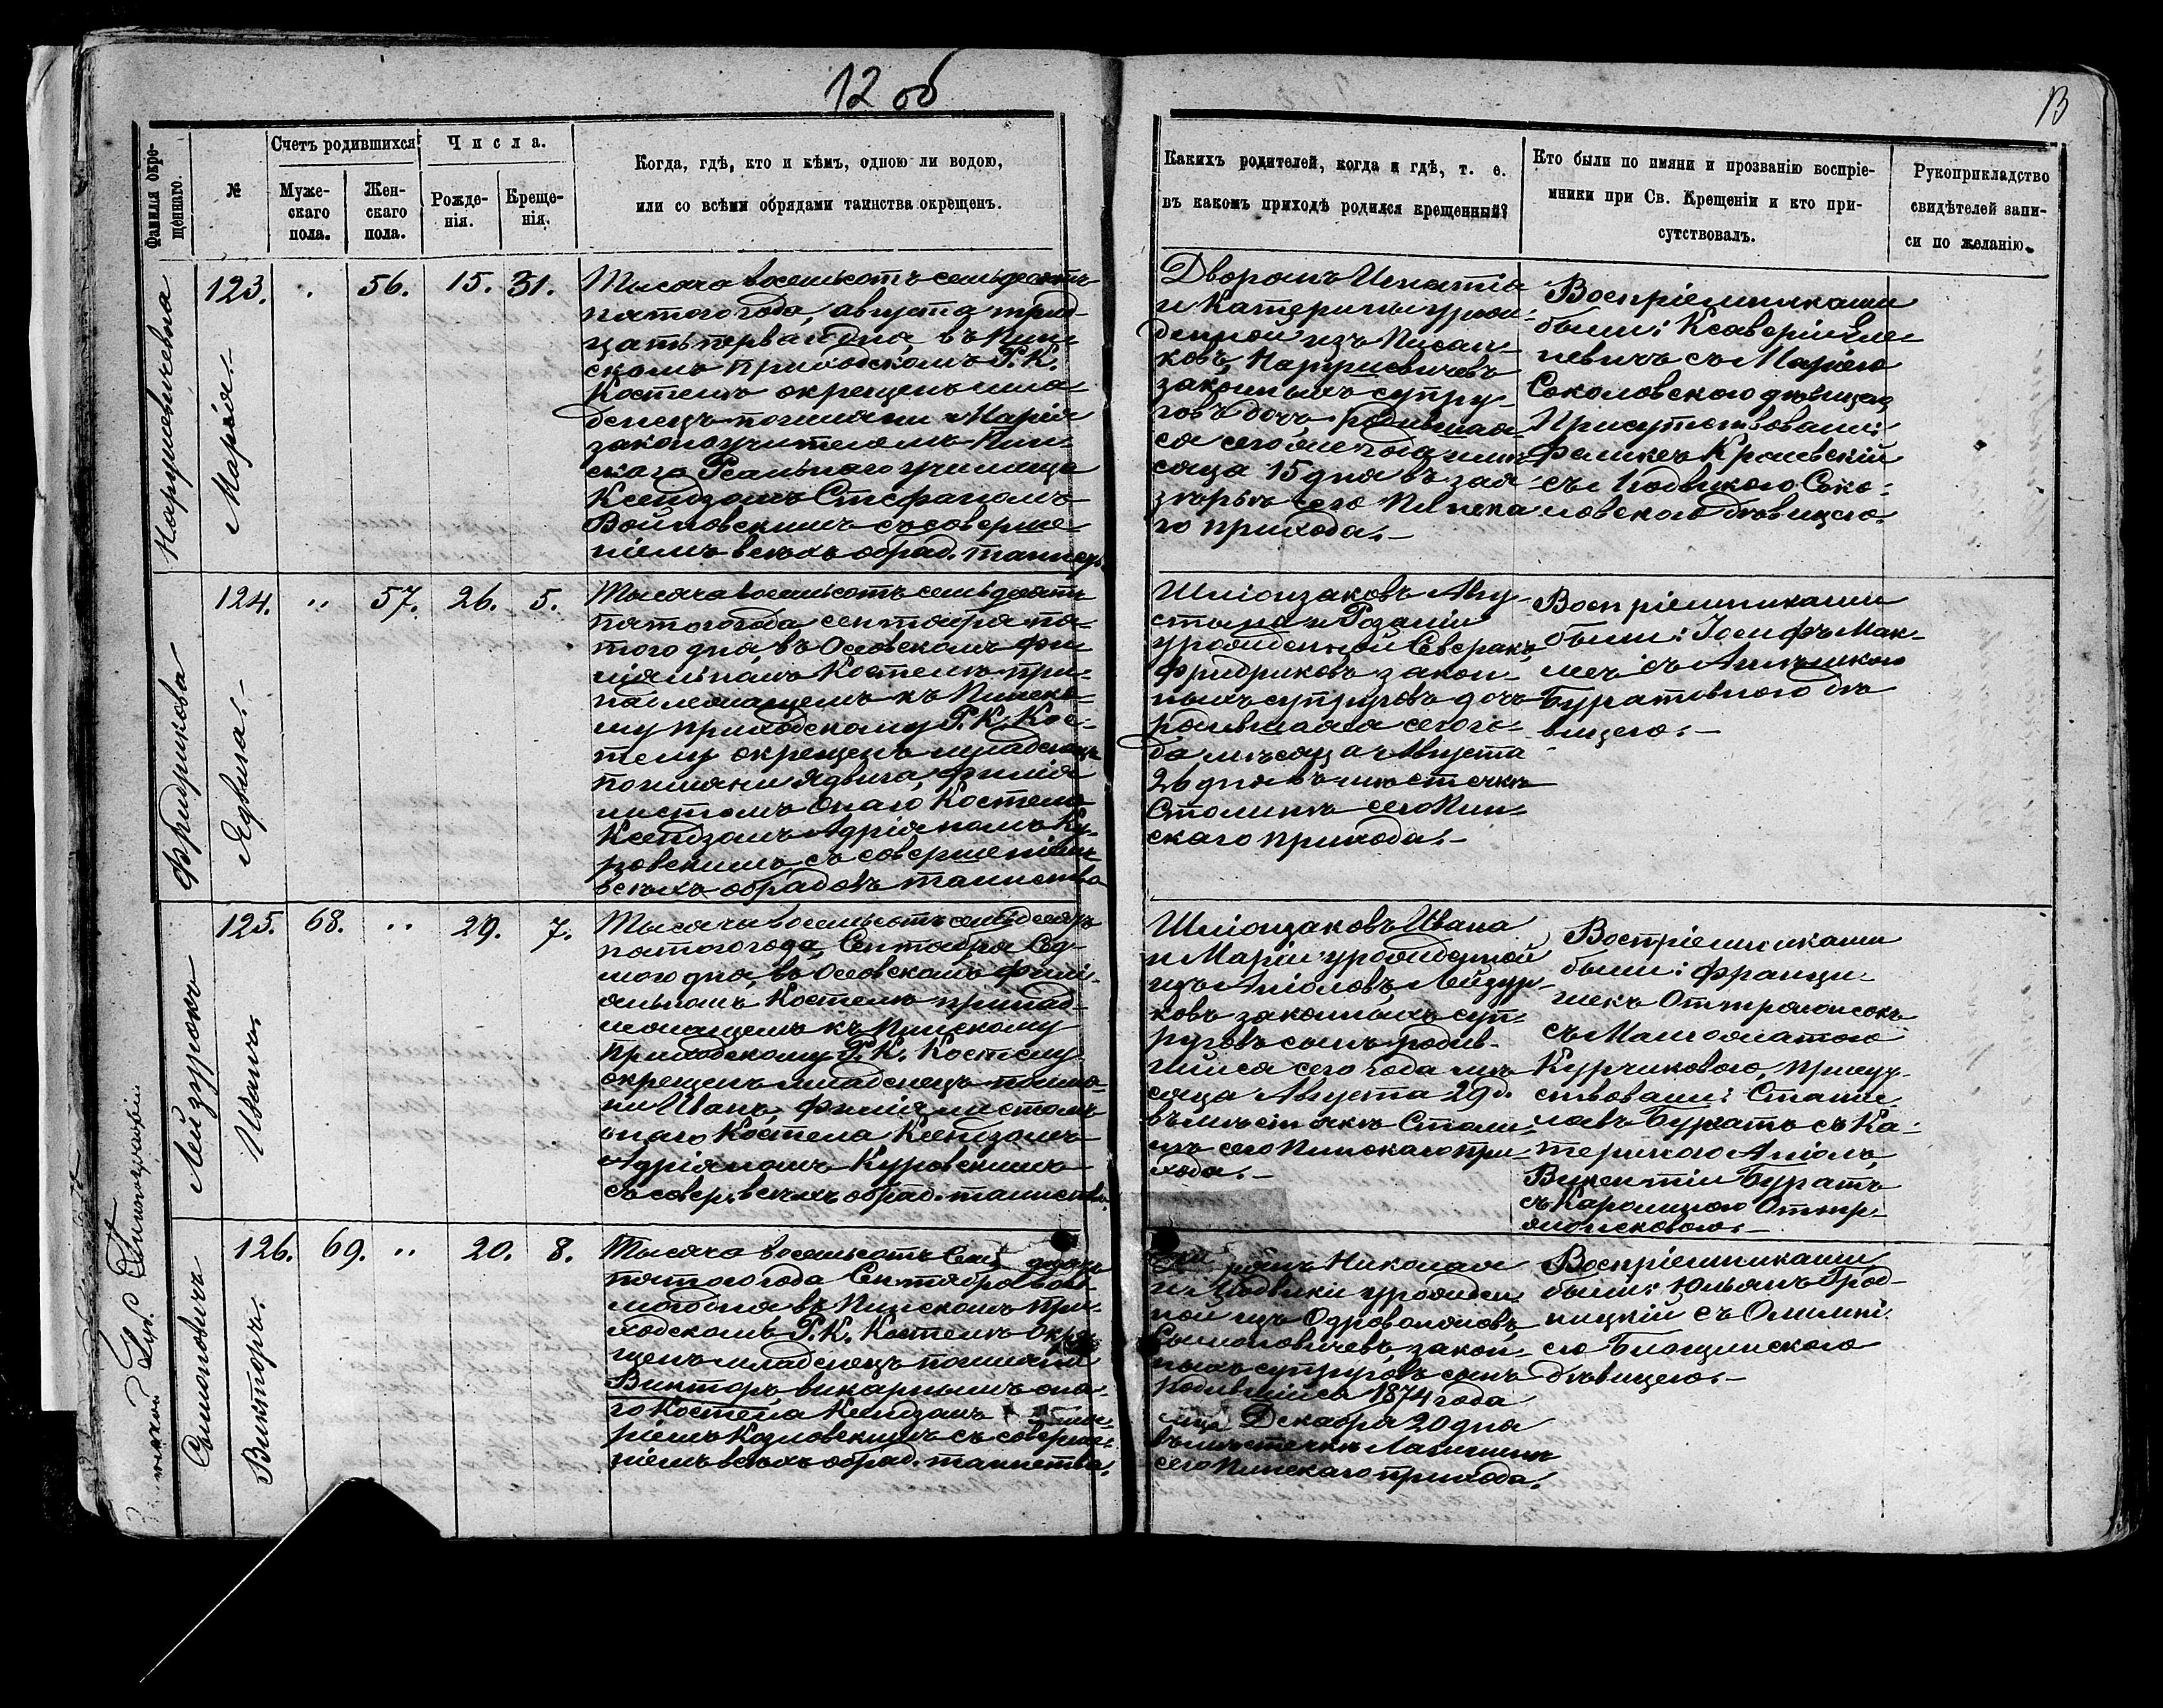 12 об
13
Фамилія окре-
щеннаго.
№
Счетъ родившихся
Муже-
скаго
пола.
Жен-
скаго
пола.
Числа.
Рожде-
нія.
Креще-
нія.
Когда, гдѣ, кто и кѣмъ, одною ли водою,
или со всѣми обрядами таинства окрещенъ.
Каких​ъ родителей, когда и гдѣ, т. е.
въ какомъ приходѣ родился крещенный?
Кто были по имяни и прозванію воспріе-
мники при Св. Крещеніи и кто при-
сутствовалъ.
Рукоприкладство
свидѣтелей запи-
си по желанію.
Нарушевичевна
Марія.
123. 56. 15. 31.
Тысяча восемьсотъ семьдесятъ
пятого года, августа трид-
цать первая дня, въ Пин-
скомъ приходскомъ Р. К.
Костелѣ окрещенъ мла
денецъ по имяни Марія
законоучителемъ Пин-
скаго Реальнаго училища
Ксендзомъ Стефаномъ
Войновскимъ съ соверше
ніемъ всѣхъ обряд. таинст.
Дворянъ Игнатія
и Катерины урож-
денной изъ Писан-
ковъ, Нарушевичевъ
законныхъ супру-
говъ дочь, родившая-
ся сего же года
сяца 15 дня въ
сего Пинска
го прихода.
Воспріемниками
были: Ксаверій
невичъ съ Маріею
Соколовскою дѣвицею,
Присутствовали:
Феликсъ
съ Людвикою Соко-
ловскою дѣвицею.
Фридрикова
Ядвига.
124. " 57. 26. 5.
Тысяча восемьсотъ семьдесятъ
пятого года сентября пя-
того дня, въ Осовскомъ фи
ліяльномъ Костелѣ при-
надлежащемъ къ Пинско-
му приходскому Р. К. Кос-
телу окрещенъ младенецъ
по имяни Ядвига, филія
листомъ онаго Костела
Ксендзомъ Адріяномъ Ку-
ровскимъ съ совершеніемъ
всѣхъ обрядовъ таинства
Шліонзаковъ Авгу-
стына и Розаліи
урожденной Северакъ
Фридриковъ закон-
ныхъ супруговъ дочь
родившаяся сего го-
да, мѣсяца Августа
26 дня въ мѣстечкѣ
Столинѣ сего Пин-
скаго прихода.
Воспріемниками
были: Іосифъ Мак-
съ
Буратовною дѣ
вицею.
Лейзурокъ
Иванъ.
125. 68. " 29. 7.
Тысяча восемьсотъ семьдесятъ
пятого года, Сентября сед-
мого дня, въ Осовскомъ фили-
яльномъ Костелѣ принад-
лежащемъ къ Пинскому
приходскому Р. К. Костелу
окрещенъ младенецъ по имя-
ни Иванъ, филіялистомъ
онаго Костела Ксендзомъ
Адріяномъ Куровскимъ
съ совер. всѣхъ обряд. таинства.
Шліонзаковъ Ивана
и Маріи урожденной
изъ Аніоловъ, Лейзур-
ковъ законныхъ суп-
руговъ сынъ родив-
шійся сего года мѣ
сяца Августа 29 д.
въ мѣстечкѣ Столи-
нѣ сего Пинскаго при-
хода.
Воспріемниками
были: Франци-
шекъ
съ Малгожатою
Курчиковою, присут-
ствовали: Стани
лавъ Буратъ съ Ка-
териною Аніолъ,
Викентій Буратъ
съ Каролиною
Сымоновичъ
Викторъ.
126. 69. " 20. 8.
Тысяча восемьсотъ семьдесятъ
пятого года Сентября вось
мого дня въ Пинскомъ при-
ходскомъ Р. К. Костелѣ окре
щенъ младенецъ по имяни
Викторъ, викарнымъ она-
го Костела Ксендзомъ
Козловскимъ съ соверше-
ніемъ всѣхъ обряд. таинства.
Николая
и Людвики урожден
ной изъ Одровонжовъ,
Сымоновичевъ, закон
ныхъ супруговъ сынъ
родившійся 1874 года
Декабря 20 дня
въ мѣстечкѣ Логишинѣ
сего Пинскаго прихода.
Воспріемниками
были: Юльянъ Грод-
ницкій съ Олимпі-
ею
дѣвицею.